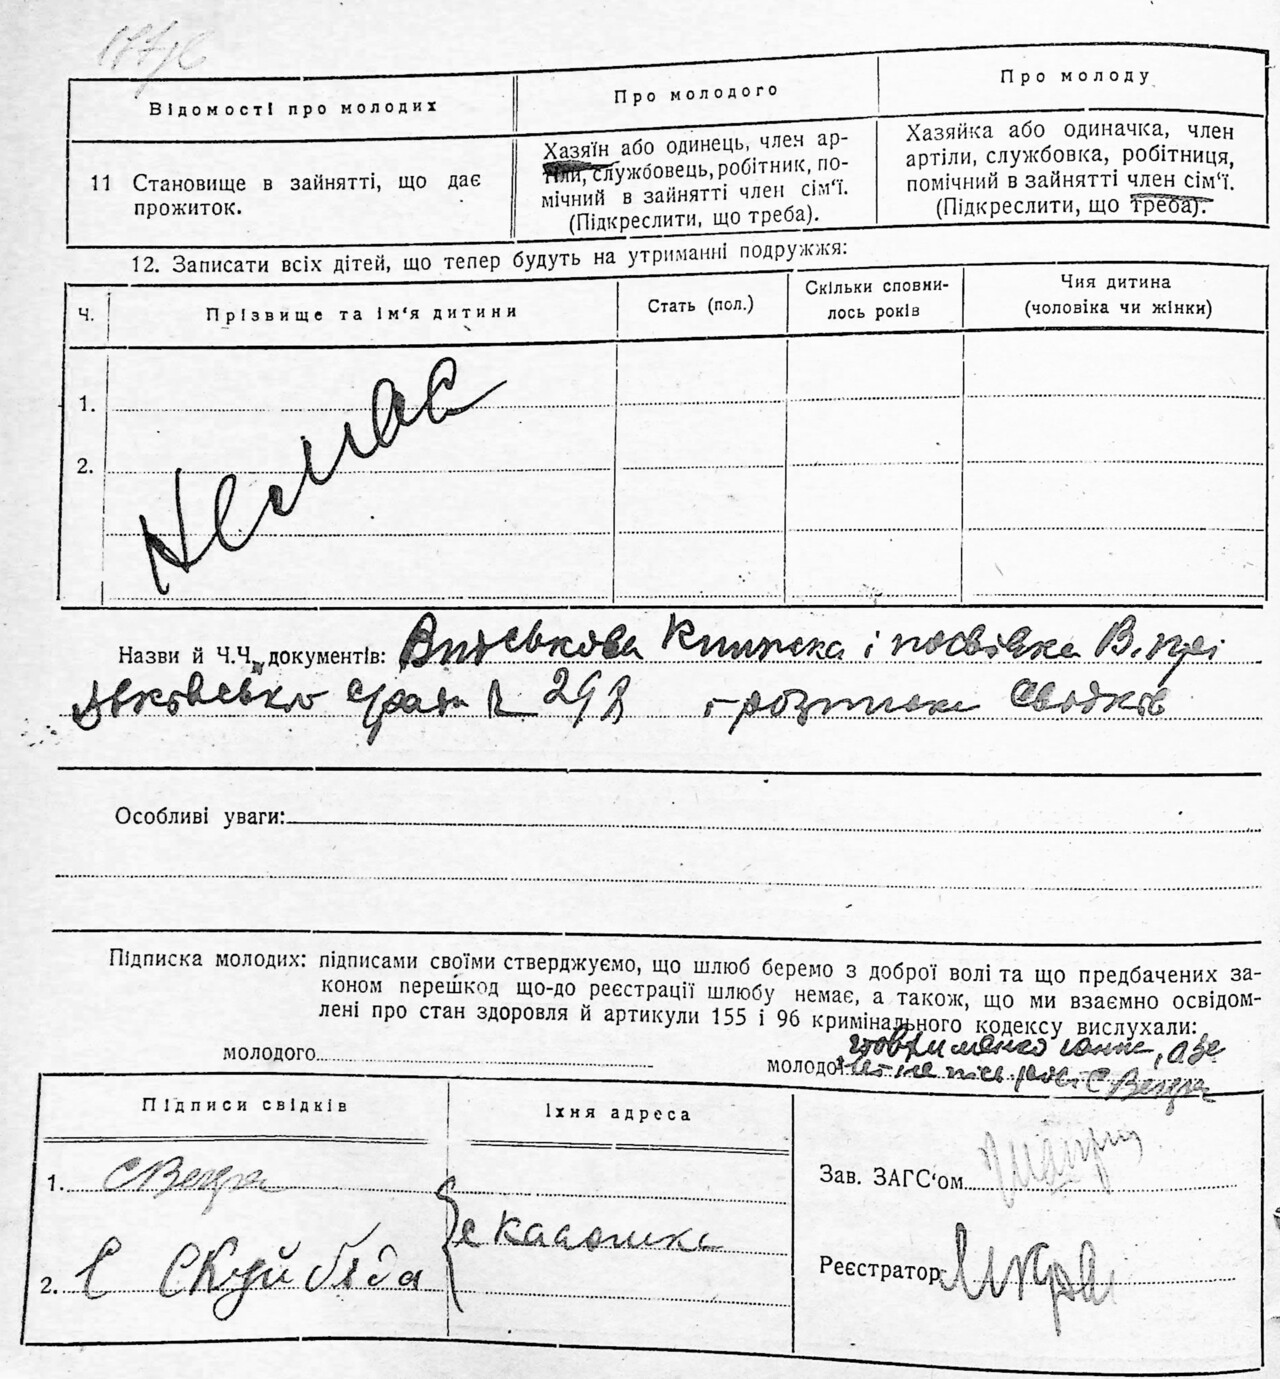 Відомості про молодих
Про молодого
Про молоду
11 Становище в зайнятті, що дає
прожиток.
Хазяїн або одинець, член ар-
тіли, службовець, робітник, по-
мічний в зайнятті член сім‘ї.
(Підкреслити, що треба).
Хазяйка або одиначка, член
артіли, службовка, робітниця,
помічний в зайнятті член сім‘ї.
(Підкреслити, що треба).
12. Записати всіх дітей, що тепер будуть на утриманні подружжя:
Ч.
Прізвище та ім‘я дитини
Стать (пол.)
Скільки сповни-
лось років
Чия дитина
(чоловіка чи жінки)
1.
2.
Немає
Назви й Ч.Ч. документів: Військова Книжка і посвідка
29 р і розписка Свідків
Особливі уваги:
Підписка молодих: підписами своїми стверджуємо, що шлюб беремо з доброї волі та що предбачених за-
коном перешкод що-до реєстрації шлюбу немає, а також, що ми взаємно освідом-
лені про стан здоровля й артикули 155 і 96 кримінального кодексу вислухали:
молодого
молодої
Підписи свідків
Їхня адреса
1.
2. С Скуйбіда
Зав. ЗАГС‘ом
Реєстратор